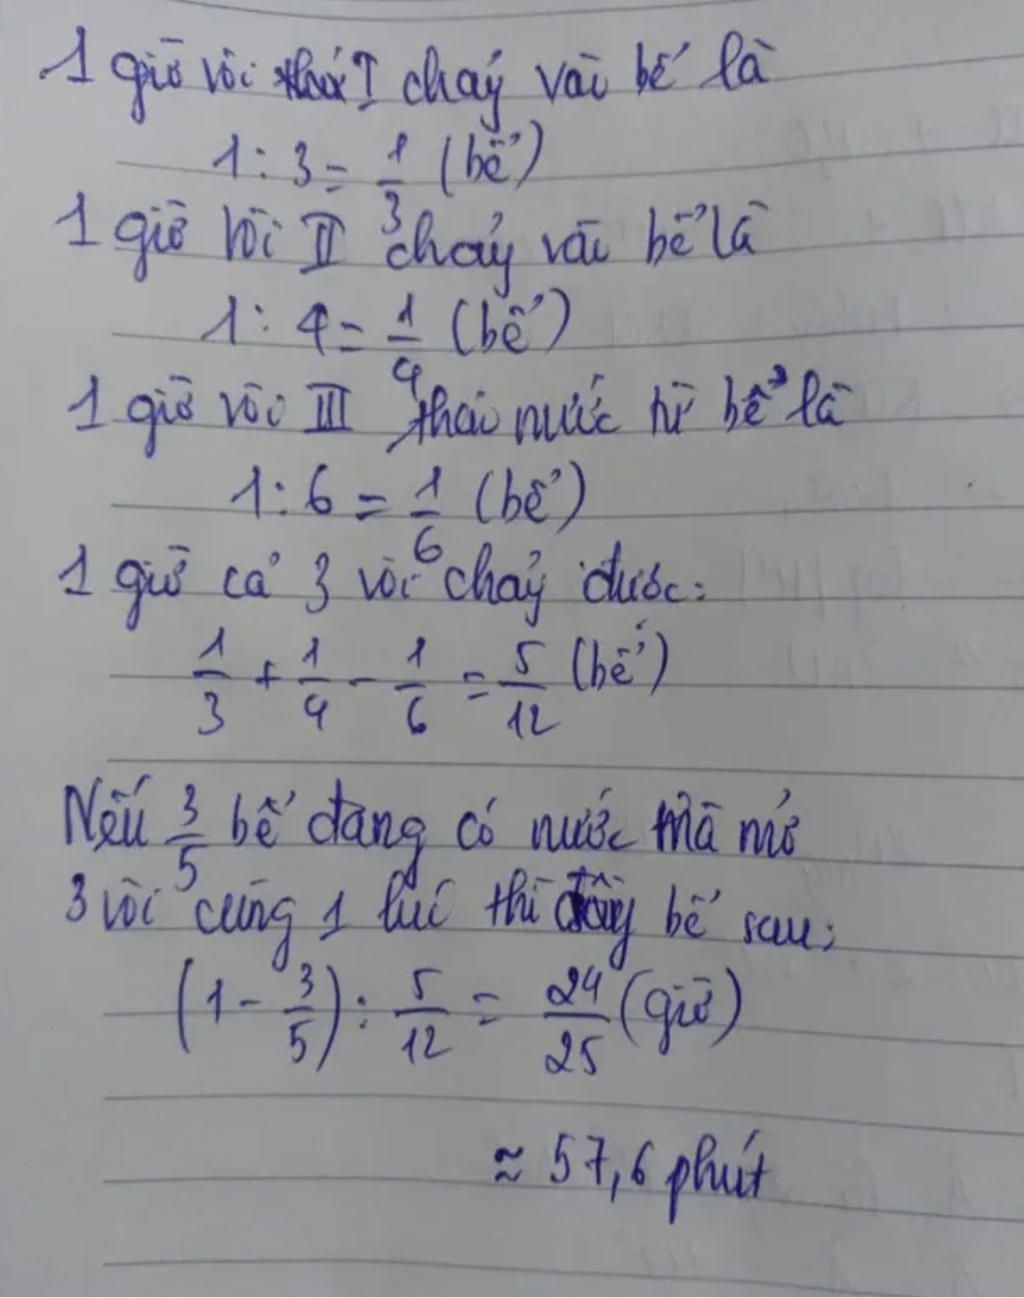 1 giờ vòi thứ I chảy vào bể là
1 : 3 = 1/3 (bể)
1 giờ vòi II chảy vào bể là
1 : 4 = 1/4 (bể)
1 giờ vòi III tháo nước từ bể là
1 : 6 = 1/6 (bể)
1 giờ cả 3 vòi chảy được:
1/3 + 1/4 - 1/6 = 5/12 (bể)
Nếu 3/5 bể đang có nước mà mở
3 vòi cùng 1 lúc thì đầy bể sau:
(1 - 3/5) : 5/12 = 24/25 (giờ)
≈ 57,6 phút